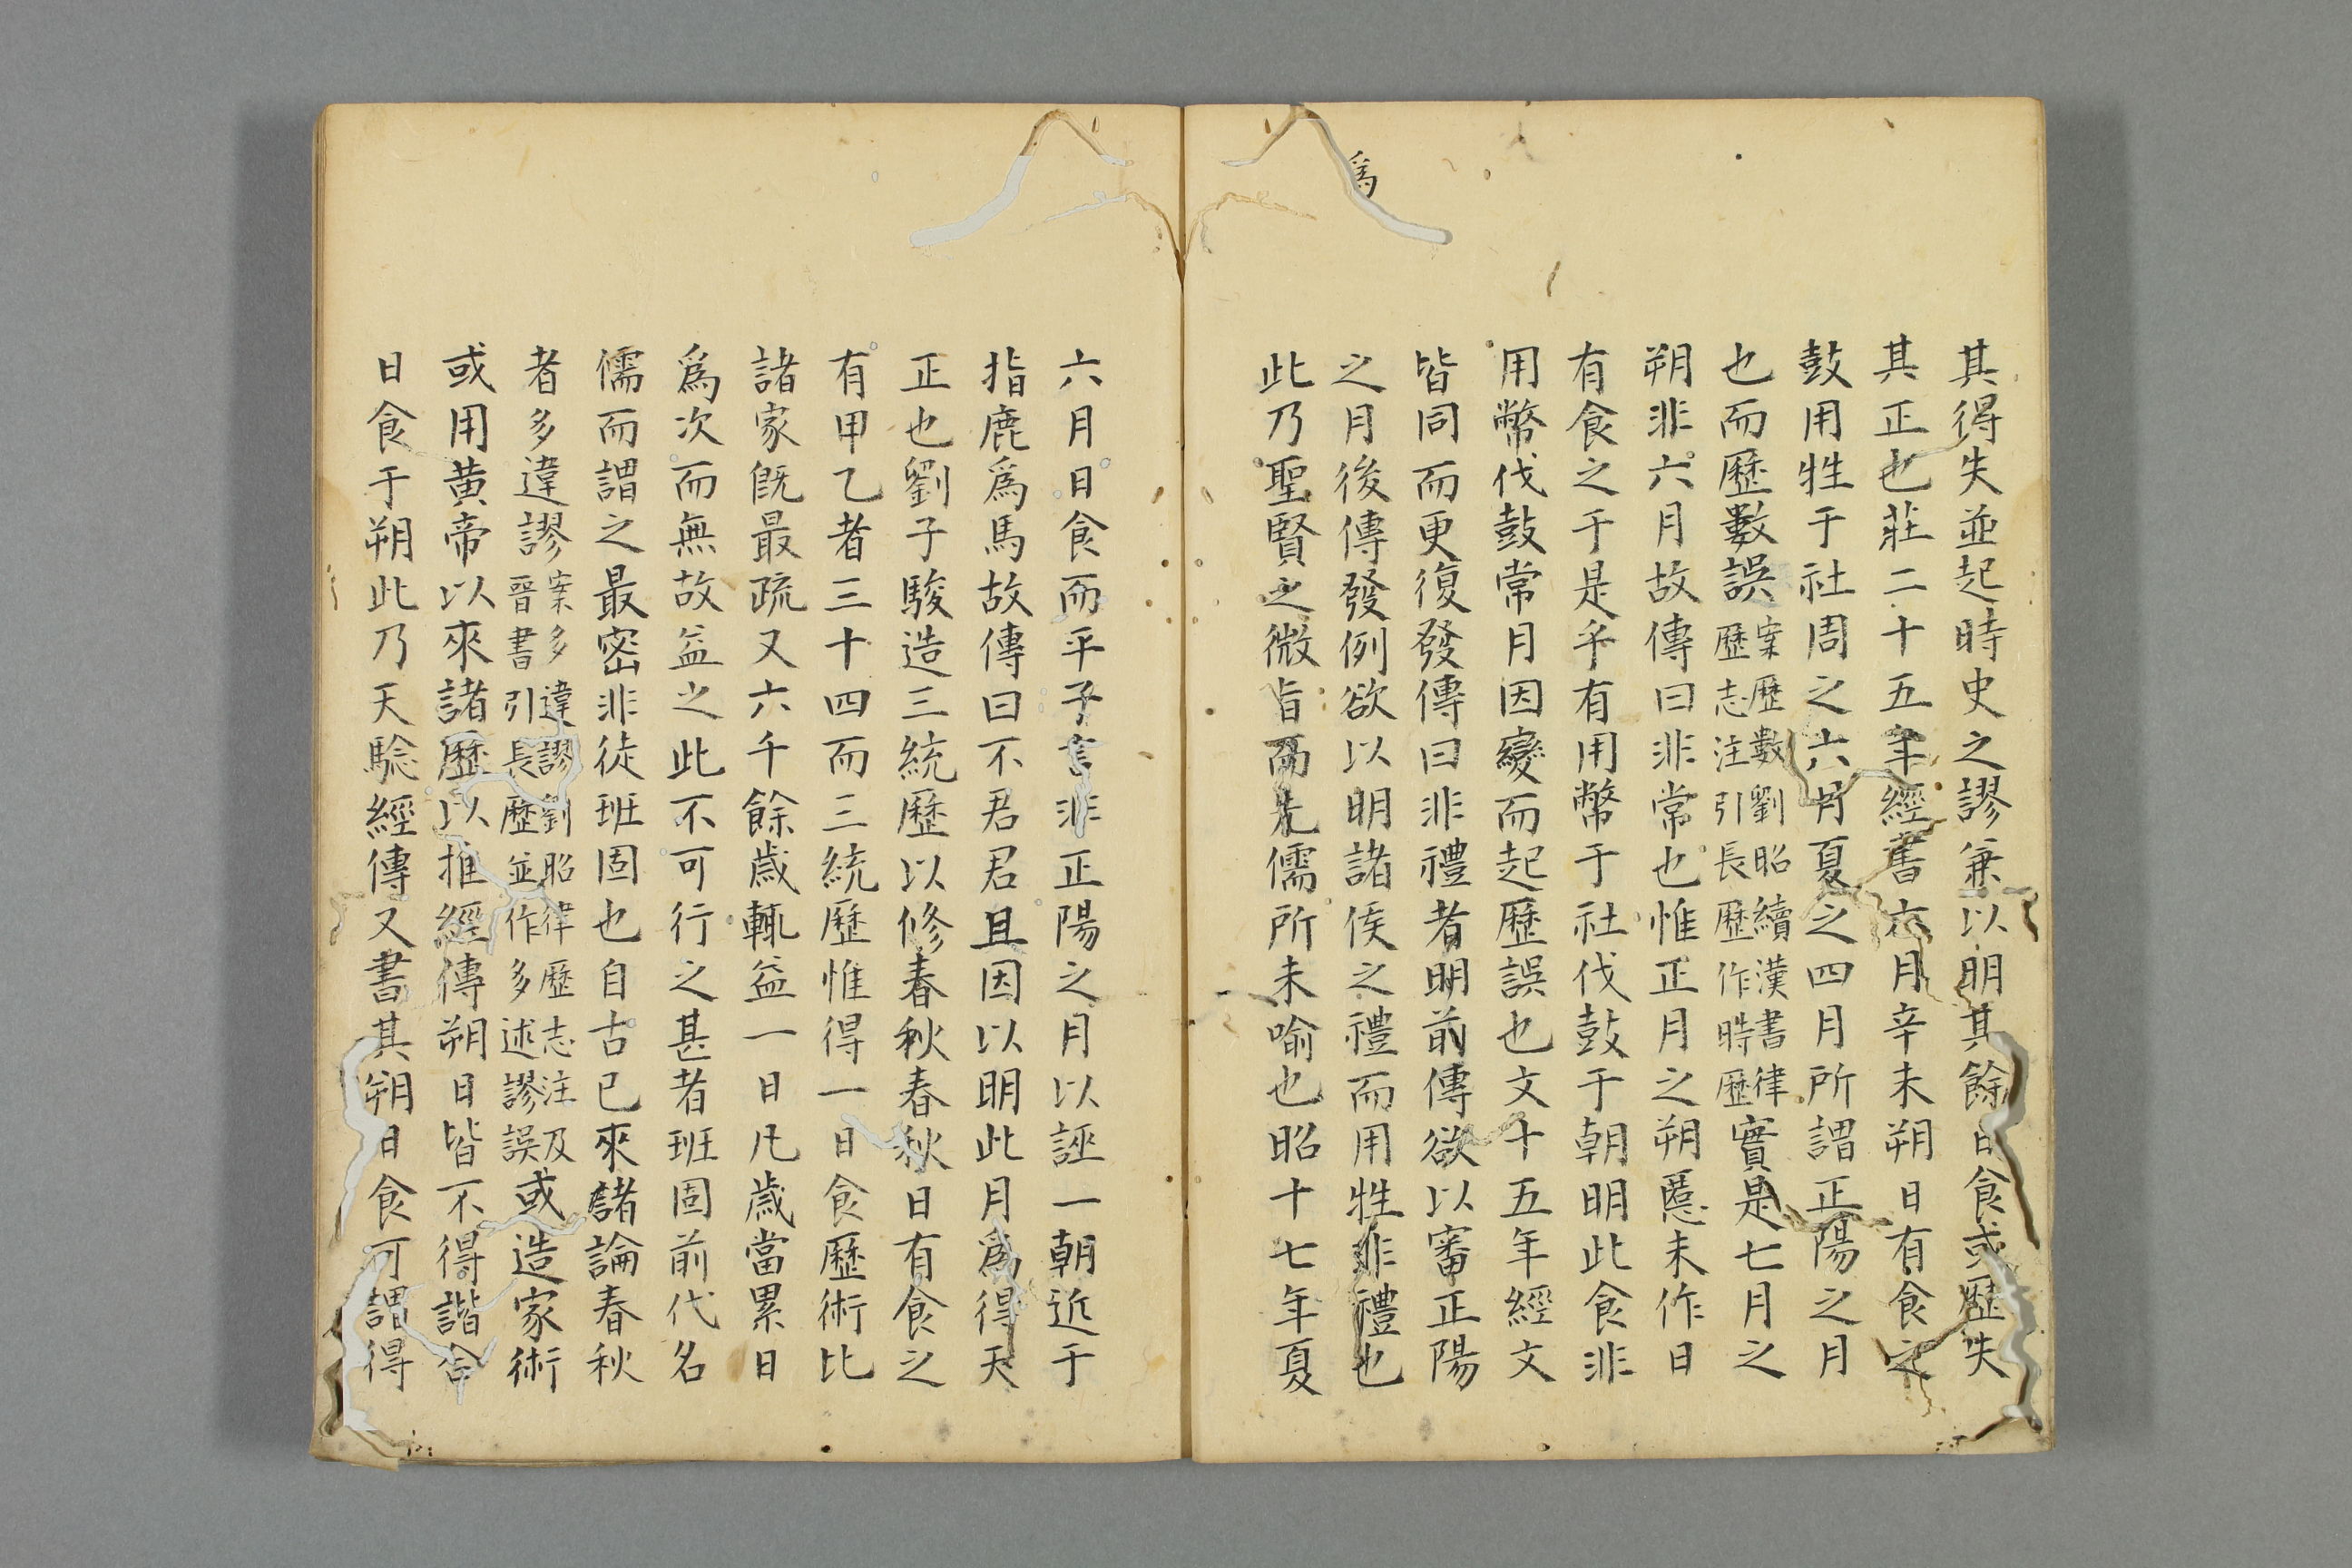 爲
其得失並起時史之謬兼以明其餘日食或歷失
其正也莊二十五年經書六月辛未朔日有食之
鼓用牲于社周之六月夏之四月所謂正陽之月
也而歷數誤案歷數劉昭續漢書律歷志注引長歷作時歷實是七月之
朔非六月故傳曰非常也惟正月之朔慝未作日
有食之于是乎有用幣于社伐鼓于朝明此食非
用幣伐鼓常月因變而起歷誤也文十五年經文
皆同而更復發傳曰非禮者明前傳欲以審正陽
之月後傳發例欲以明諸侯之禮而用牲非禮也
此乃聖賢之微旨而先儒所未喻也昭十七年夏
六月日食而平子言非正陽之月以誣一朝近于
指鹿爲馬故傳曰不君君且因以明此月爲得天
正也劉子駿造三統歷以修春秋春秋日有食之
有甲乙者三十四而三統歷惟得一日食歷術比
諸家既最疏又六千餘歲輒益一日凡歲當累日
爲次而無故益之此不可行之甚者班固前代名
儒而謂之最密非徒班固也自古已來諸論春秋
者多違謬案多違謬劉昭律歷志注及晉書引長歷並作多述謬誤或造家術
或用黃帝以來諸歷以推經傳朔日皆不得諧合
日食于朔此乃天驗經傳又書其朔日食可謂得